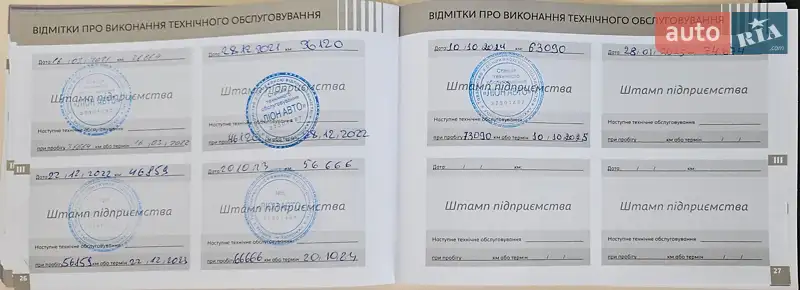 ВІДМІТКИ ПРО ВИКОНАННЯ ТЕХНІЧНОГО ОБСЛУГОВУВАННЯ
Дата км
Штамп підприємства
Наступне технічне обслуговування
при пробігу км або термін
Дата 28.12.2021 км 36120
Штамп підприємства
«ЛІОН-АВТО»
при пробігу 46120 28.12.2022
Дата 22.12.2022 км 46859
Штамп підприємства
Наступне технічне обслуговування
при пробігу 56859 км або термін 22.12.2023
56666
Штамп підприємства
Наступне технічне обслуговування
при пробігу 66666 км або термін 20.10.24
26
ВІДМІТКИ ПРО ВИКОНАННЯ ТЕХНІЧНОГО ОБСЛУГОВУВАННЯ
Дата 10.10.2024 км 63090
Станція
технічного
обслуговування
«ЛІОН-АВТО»
Штамп підприємства
Наступне технічне обслуговування
при пробігу 73090 км або термін 10.10.2025
Дата
Штамп підприємства
Наступне технічне обслуговування
при пробігу км або термін / /
Дата / / км
Штамп підприємства
Наступне технічне обслуговування
при пробігу км або термін / /
Дата / / км
Штамп підприємства
Наступне технічне обслуговування
при пробігу км або термін / /
III
III
27
auto RIA.com